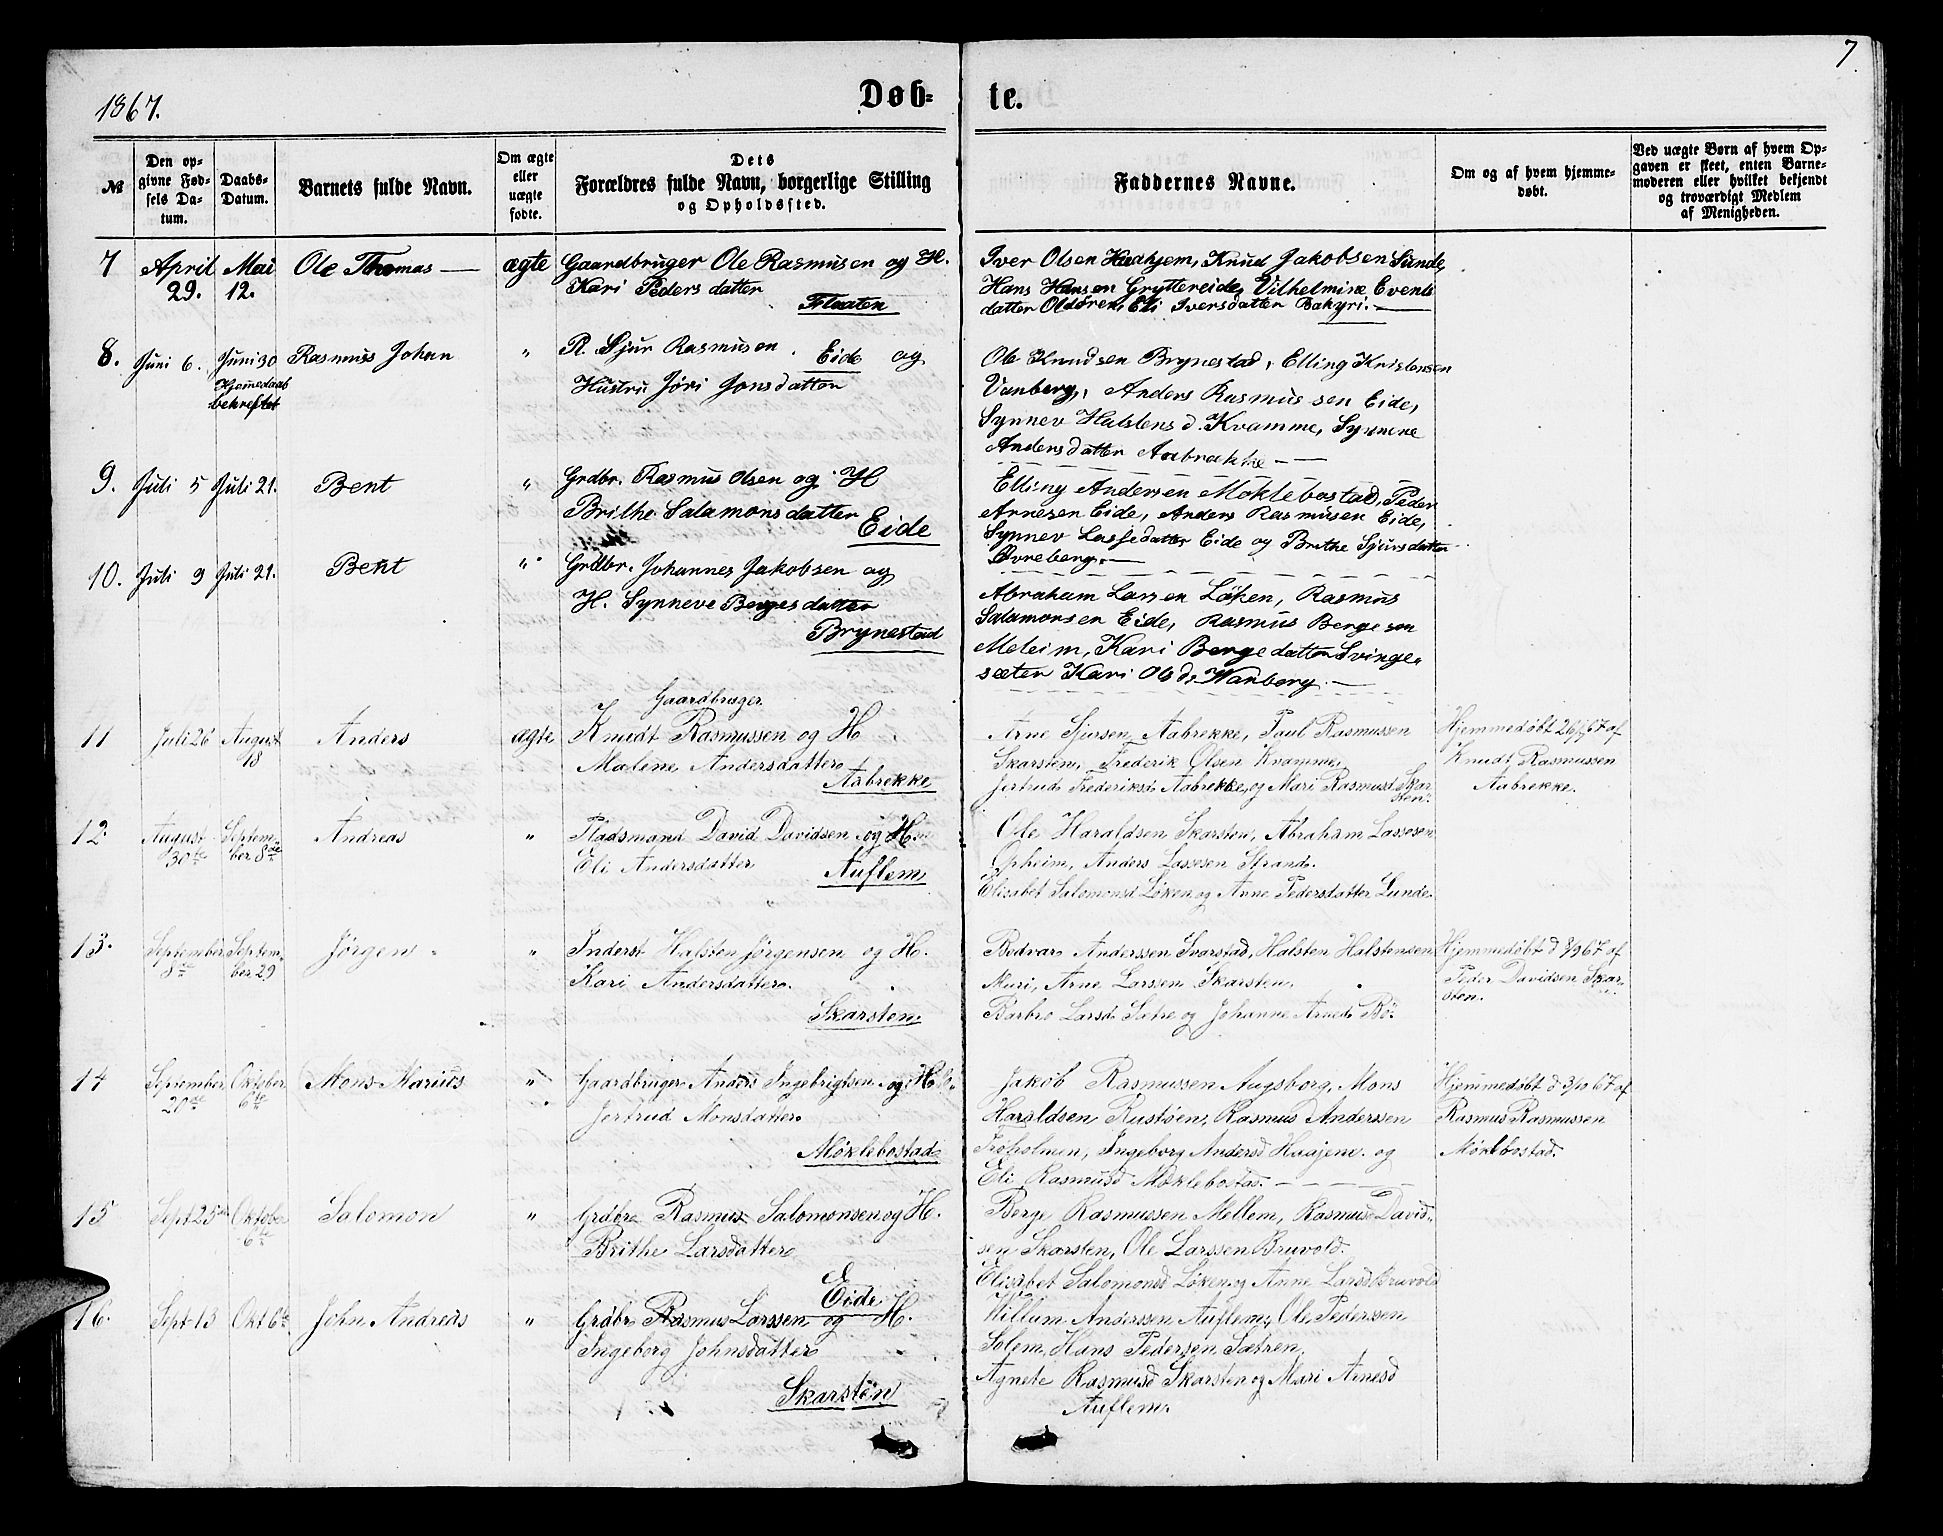 7
1867.
Døb-
te.
№
Den opgivne Fødsels Datum.
Daabs-Datum.
Barnets fulde Navn.
Om ægte eller uægte fødte.
Dets Forældres fulde Navn, borgerlige Stilling og Opholdssted.
Faddernes Navne.
Om og af hvem hjemmedøbt.
Ved uægte Børn af hvem Opgaven er skeet, enten Barnemoderen eller hvilket bekjendt og troværdigt Medlem af Menigheden.
7 April 29. Mai 12. Ole Thomas — ægte
Gaardbruger Ole Rasmusen og H.
Kari Pedersdatter
Flaaten
Iver Olsen Hindhjem, Knud Jakobsen Sunde,
Hans Hansen Gryttereide, Vilhelmine Events
datter Oldören, Eli Iversdatter Bakyri. —
8. Juni 6. Juni 30 Hjemedaab bekreftet Rasmus Johan "
R. Sjur Rasmusen. Eide og
Hustru Jøri Jonsdatter
Ole Knudsen Brynestad, Elling Kristensen
Vanberg, Anders Rasmussen Eide,
Synnev Halstens d. Kvamme, Synneve
Andersdatter Aabrekke —
9. Juli 5 Juli 21. Bent "
Grdbr. Rasmus Olsen og H
Brithe Salamonsdatter
Eide
Elling Andersen Moklebostad, Peder
Arnesen Eide, Anders Rasmusen Eide,
Synnev Lassedatter Eide og Brithe Sjursdatter
Øvreberg. —
10. Juli 9 Juli 21. Bent "
Grdbr. Johannes Jakobsen og
H. Synneve Bergesdatter
Brynestad
Abraham Larsen Löken, Rasmus
Salamonsen Eide, Rasmus Bergeson
Meleim, Kari Bergedatter Svinge-
sæter Kari Ols d. Wanberg. —
11 Juli 26 August 18 Anders ægte
Gaardbruger
Knudt Rasmussen og H
Malene Andersdatter
Aabrekke
Arne Sjursen Aabrekke, Paul Rasmussen
Skarsten, Frederik Olsen Kvamme,
Jertrud Frederiksd Aabrekke, og Mari Rasmusd Skarsten.
Hjemmedøbt 26/7 67 af
Knudt Rasmussen
Aabrekke.
12. August 30te September 8de Andreas "
Pladsmand David Davidsen og H.
Eli Andersdatter
Auflem
Ole Haraldsen Skarsten, Abraham Lassesen
Opheim, Anders Lassesen Strand.
Elisabet Salomonsd Löken og Anne Pedersdatter Lunde.
13. September 8de September 29 Jørgen "
Inderst Halsten Jørgensen og H.
Kari Andersdatter.
Skarsten.
Bødvar Anderssen Svarstad, Halsten Halstensen
Muri, Arne Larssen Skarsten.
Barbro Larsd. Sætre og Johanne Arnesd Bö.
Hjemmedøbt d 8/9 67 af
Peder Davidsen Skar-
sten.
14 September 20de Oktober 6te Mons Marius "
Gaardbruger Anders Ingebrigtsen og H
Jertrud Monsdatter
Møklebostad
Jakob Rasmussen Augsborg, Mons
Haraldsen Rustöen, Rasmus Anderssen
Fröholmen, Ingeborg Andersd Haajem. og
Eli Rasmusd Møklebostad. —
Hjemmedøbt d 3/10 67 af
Rasmus Rasmussen
Møklebostad.
15 Sept 25de Oktober 6te Salomon "
Grdbr Rasmus Salomonsen og H.
Brithe Larsdatter
Eide
Berge Rasmussen Mellem, Rasmus David-
sen Skarsten, Ole Larssen Bruvold.
Elisabet Salomonsd Löken og Anne Larsd Bruvold
16. Sept 13 Okt 6te John Andreas "
Grdbr Rasmus Larssen og H.
Ingeborg Johnsdatter
Skarsten
Willum Anderssen Auflem, Ole Pederssen
Solem, Hans Pedersen Sætren,
Agnete Rasmusd Skarsten og Mari Arnesd
Auflem.